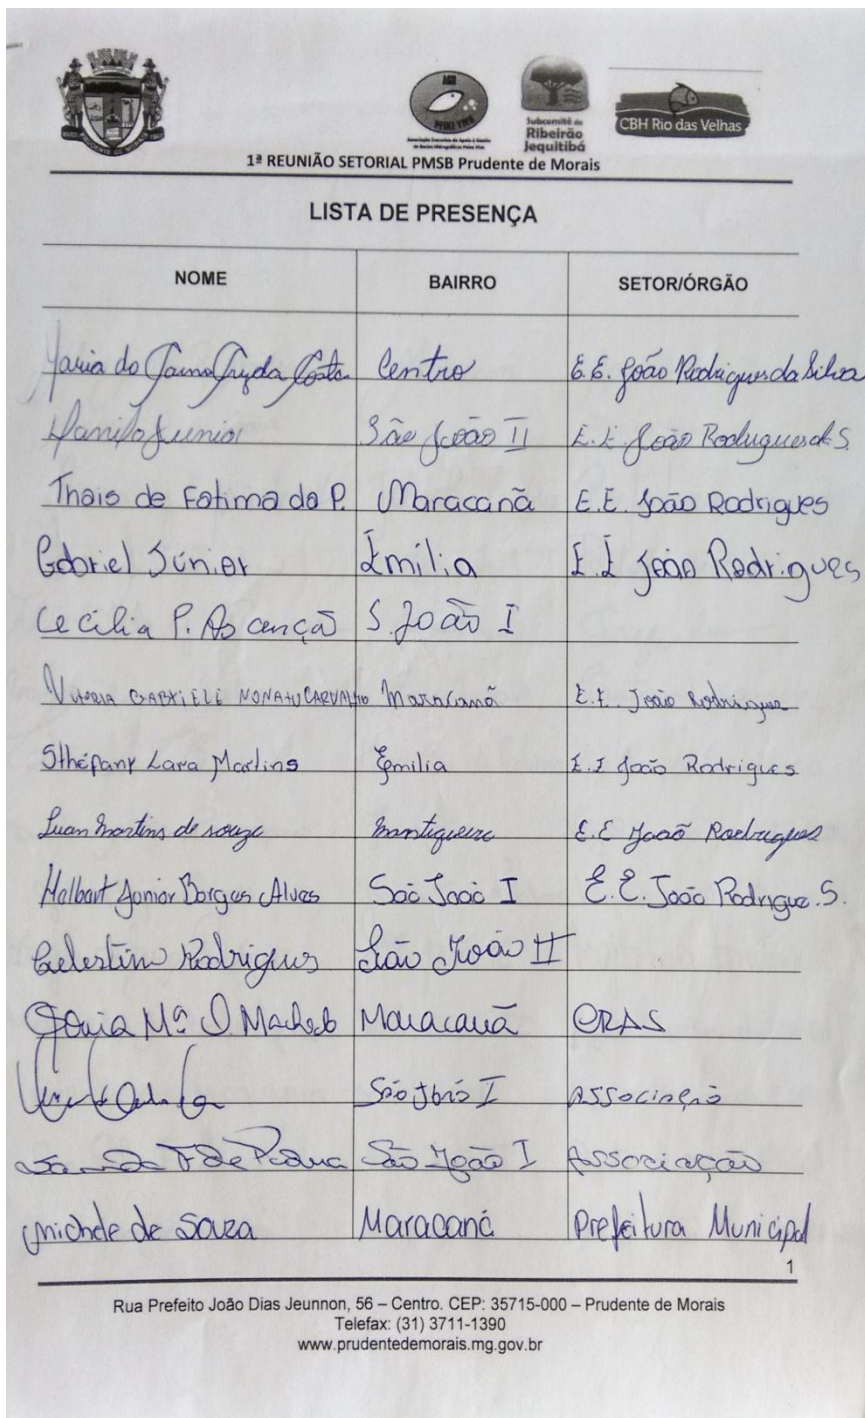 AGB
PEIXE VIVO
Associação Executiva de Apoio à Gestão
de Bacias Hidrográficas Peixe Vivo
Subcomitê do
Ribeirão
Jequitibá
CBH Rio das Velhas
1ª REUNIÃO SETORIAL PMSB Prudente de Morais
LISTA DE PRESENÇA
NOME BAIRRO SETOR/ÓRGÃO
Maria do Costa Centro E.E. João Rodrigues da Silva
Danilo Junior São João II E.E João Rodrigues de S.
Thais de Fatima da P. Maracanã E.E. João Rodrigues
Gabriel Júnior Emília E.E João Rodrigues
Cecilia P. Ascenção S. João I
Vitoria GABRIELE NONATO CARVALHO Maracanã E.E. João Rodrigues
Sthépany Lara Martins Emilia E.E João Rodrigues
Luan Martins de souza Mantiqueira E.E João Rodrigues
Helbart Junior Borges Alves São João I E.E. João Rodrigue. S.
Celestino Rodrigues São João II
Sonia Mª D. Machado Maracanã CRAS
São João I Associação
F de Padua São João I Associação
Michele de Souza Maracanã Prefeitura Municipal
1
Rua Prefeito João Dias Jeunnon, 56 – Centro. CEP: 35715-000 – Prudente de Morais
Telefax: (31) 3711-1390
www.prudentedemorais.mg.gov.br